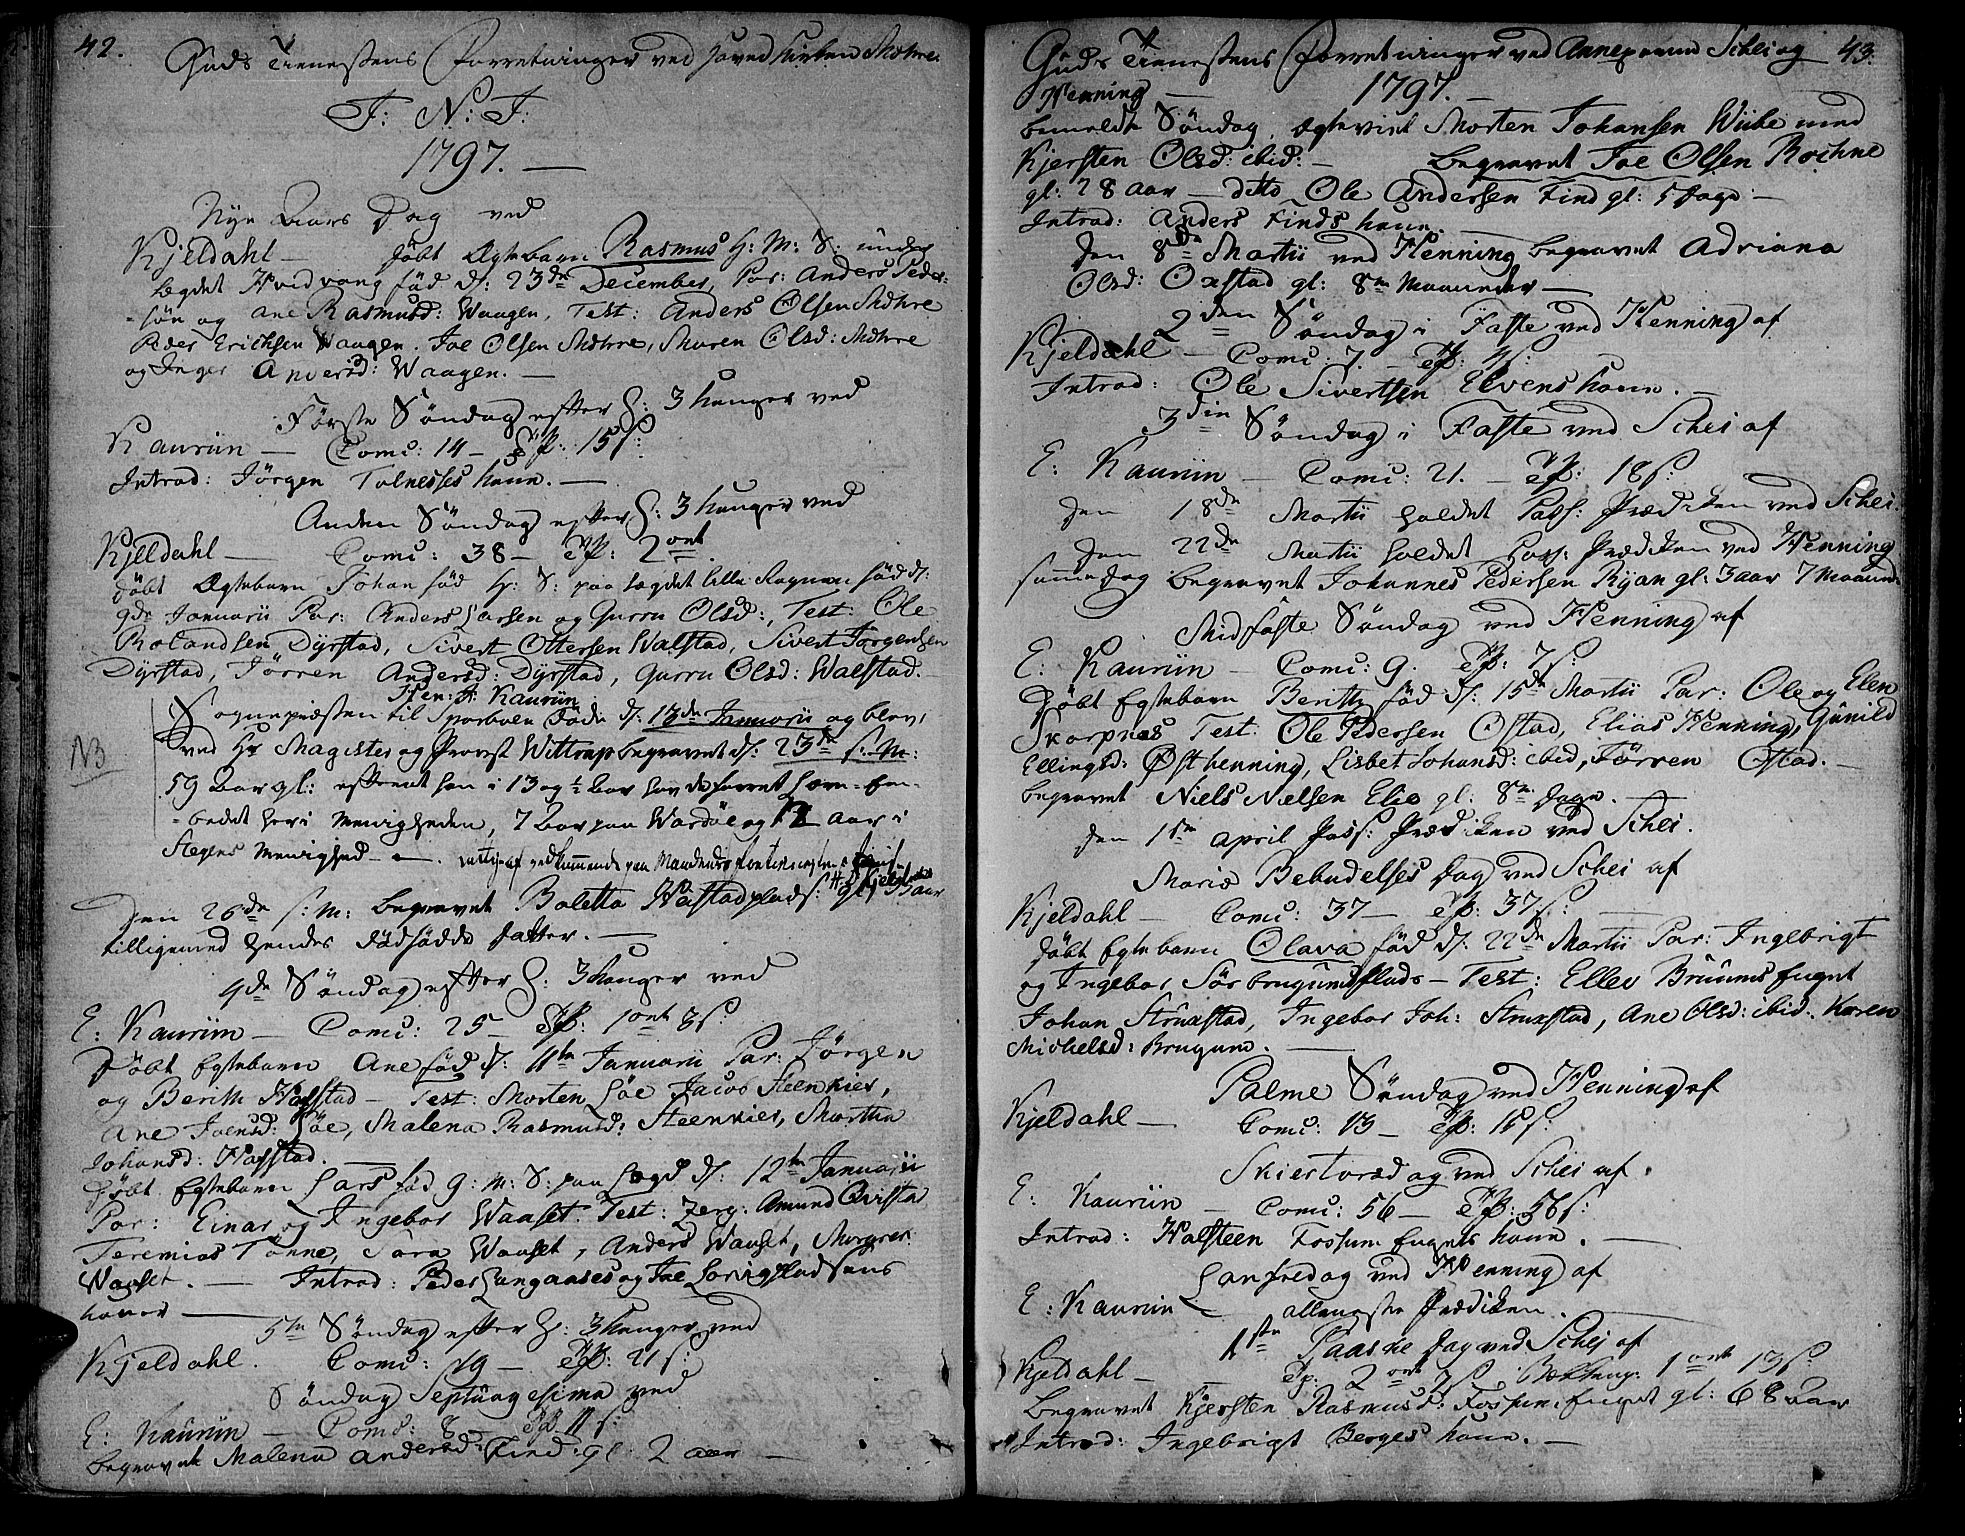 42. Guds Tienestens Forretninger ved Hoved Kirken Mæhre
J: N: J:
1797. —
Nye Aars Dag ved
Kjeldahl — døbt Ægtebarn Rasmus H: M: D: under
Lægdet Hvidvong fød d: 23de December, Par: Anders Peder-
søn og Ane Rasmusd: Waagen, Test: Anders Olsen Mæhre
Peder Erichsen Waagen. Joe Olsen Mæhre, Maren Olsd: Mæhre
og Inger Andersd: Waagen. —
Første Søndag efter H: 3 Konger ved
Kauriin — Comu: 14 — Of: 15 s:
Introd: Jørgen Tolnesses kone. —
Anden Søndag efter H: 3 Konger ved
Kjeldahl — Comu: 38 — Of: 2 ort
døbt Ægtebarn Johan fød H: D: paa Lægdet lille fød d:
9de Januarii Par: Anders Larsen og Gurru Olsd:, Test: Ole
Rolandsen Dyrstad, Sivert Ottersen Walstad, Sivert Jørgensen
Dyrstad, Jørren Andersd: Dyrstad, Gurru Olsd: Walstad. —
Kauriin
NB Sognepræsten til Sparboen døde d: 13de Januarii og blev
ved Hr Magister og Provst Wittrup begravet d: 23de s: M:
59 Aar gl: efterat han i 13 og ½ Aar havde forret-
her i Menigheden, 7 Aar paa Wardøe og 12 Aar i
Stegens Menighed —
den 26de s: M: begravet Boletta Hafstadplads: gl: 3 aar
tilligemed hendes dødfødde datter. —
4de Søndag efter H: 3 Konger ved
E: Kauriin — Comu: 25 — Of: 1 ort 8 s:
Døbt Egtebarn Ane fød d: 11te Januarii Par: Jørgen
og Berith Hafstad — Test: Morten Løe Jacob Steenkier,
Ane Joensd: Løe, Malena Rasmusd: Steenkier, Martha
Johansd: Hafstad.
Døbt Egtebarn Lars fød g: M: D: paa Lægd d: 12te Januarii
Par: Einar og Ingebor Waaset. Test: Zerg: Amund Qvistad
Jeremias Tønne, Sara Waaset, Anders Waaset, Margret
Waaset. — Introd: Peder Langaases og Joe Lorvigpladsens
koner —
5te Søndag efter H: 3 Konger ved
Kjeldahl. Comu: 19 — Of: 21 s:
Søndag Septuagesima ved
E: Kauriin — Comu: 8 — Of: 11 s:
Begravet Malena Andersd: Find gl 2 aar —
Guds Tienestens Forretninger ved Annexerne Schei og 43.
Henning — 1797. —
bemeldte Søndag. Ægteviet Morten Johansen Wiibe med
Kjersten Olsd: ibid: — Begravet Joe Olsen Rochne
gl: 28 aar — ditto Ole Andersen Find gl: 5 Dage —
Introd: Anders Finds kone. —
den 8de Martii ved Henning begravet Adriana
Olsd: Oxstad gl: 8te Maaneder —
2den Søndag i Faste ved Henning af
Kjeldahl — Comu: 7. — Of: 4 s:
Introd: Ole Sivertsen Elvens kone. —
3die Søndag i Faste ved Schei af
E: Kauriin — Comu: 21. — Of: 18 s:
den 18de Martii holdet Pass: Prædiken ved Schei.
den 22de Martii holdet Pass: Prædiken ved Henning
samme dag begravet Johannes Pedersen Ryan gl: 3 aar 7 Maaned:
Midfaste Søndag ved Henning af
E: Kauriin — Comu: 9. Of: 7 s:
Døbt Egtebarn Berith fød d: 15de Martii Par: Ole og Elen
Skarpnes Test: Ole Pedersen Ofstad, Elias Henning, Gunild
Ellingsd: Østhenning, Lisbet Johansd: ibid, Jørren Ofstad. —
begravet Niels Nielsen Elie gl: 8te Dage.
den 1ste April Pass: Prædiken ved Schei.
Mariæ Bebudelses Dag ved Schei af
Kjeldahl — Comu: 37 — Of: 37 s: —
døbt Egtebarn Olava fød d: 22de Martii Par: Ingebrigt
og Ingebor Sørbrugumsplads — Test: Ellev Bruumsenget
Johan Struxstad, Ingebor Joh: Struxstad, Ane Olsd: ibid: Karen
Michelsd: Brugum. —
Palme Søndag ved Henning af
Kjeldahl — Comu: 13 — Of: 16 s:
Skiertorsdag ved Schei af.
E: Kauriin — Comu: 56 — Of: 56 s:
Introd: Halsteen Fossum Engets kone. —
Langfredag ved Henning af
E: Kauriin — Prædiken. —
1ste Paaske Dag ved Schei af
Kjeldahl — Of: 2 ort 7 s: 1 ort 13 s:
Begravet Kjersten Rasmusd: Fossumenget gl: 68 aar
Introd: Ingebrigt Berges kone. —